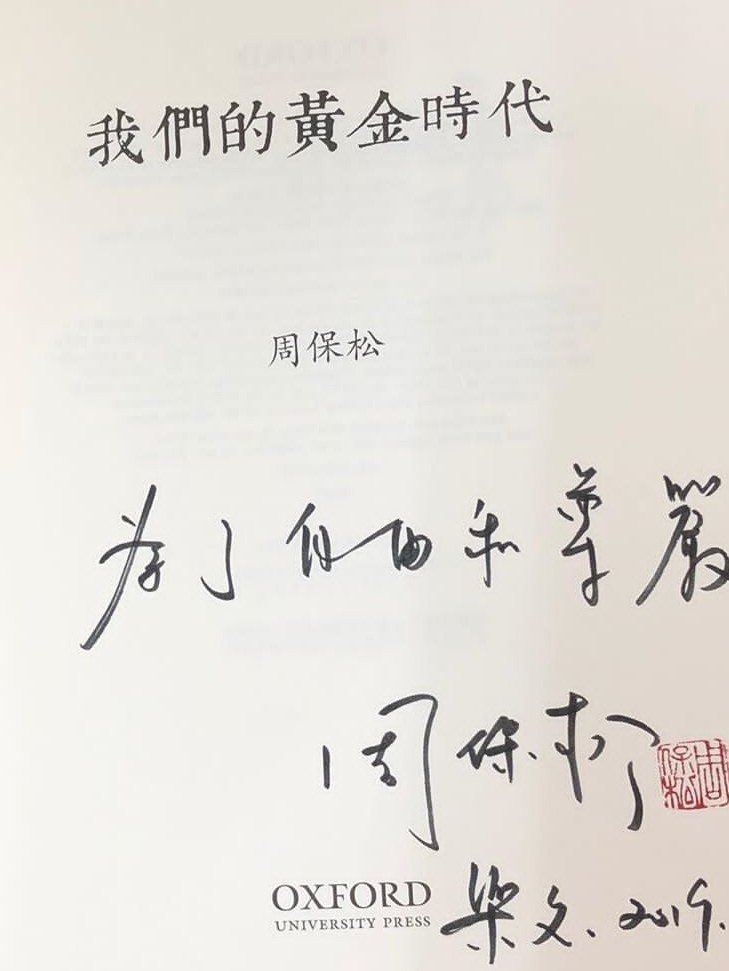 我們的黃金時代
周保松
為了自由和尊嚴
周保松
周保松
OXFORD
UNIVERSITY PRESS
中文. 2019.